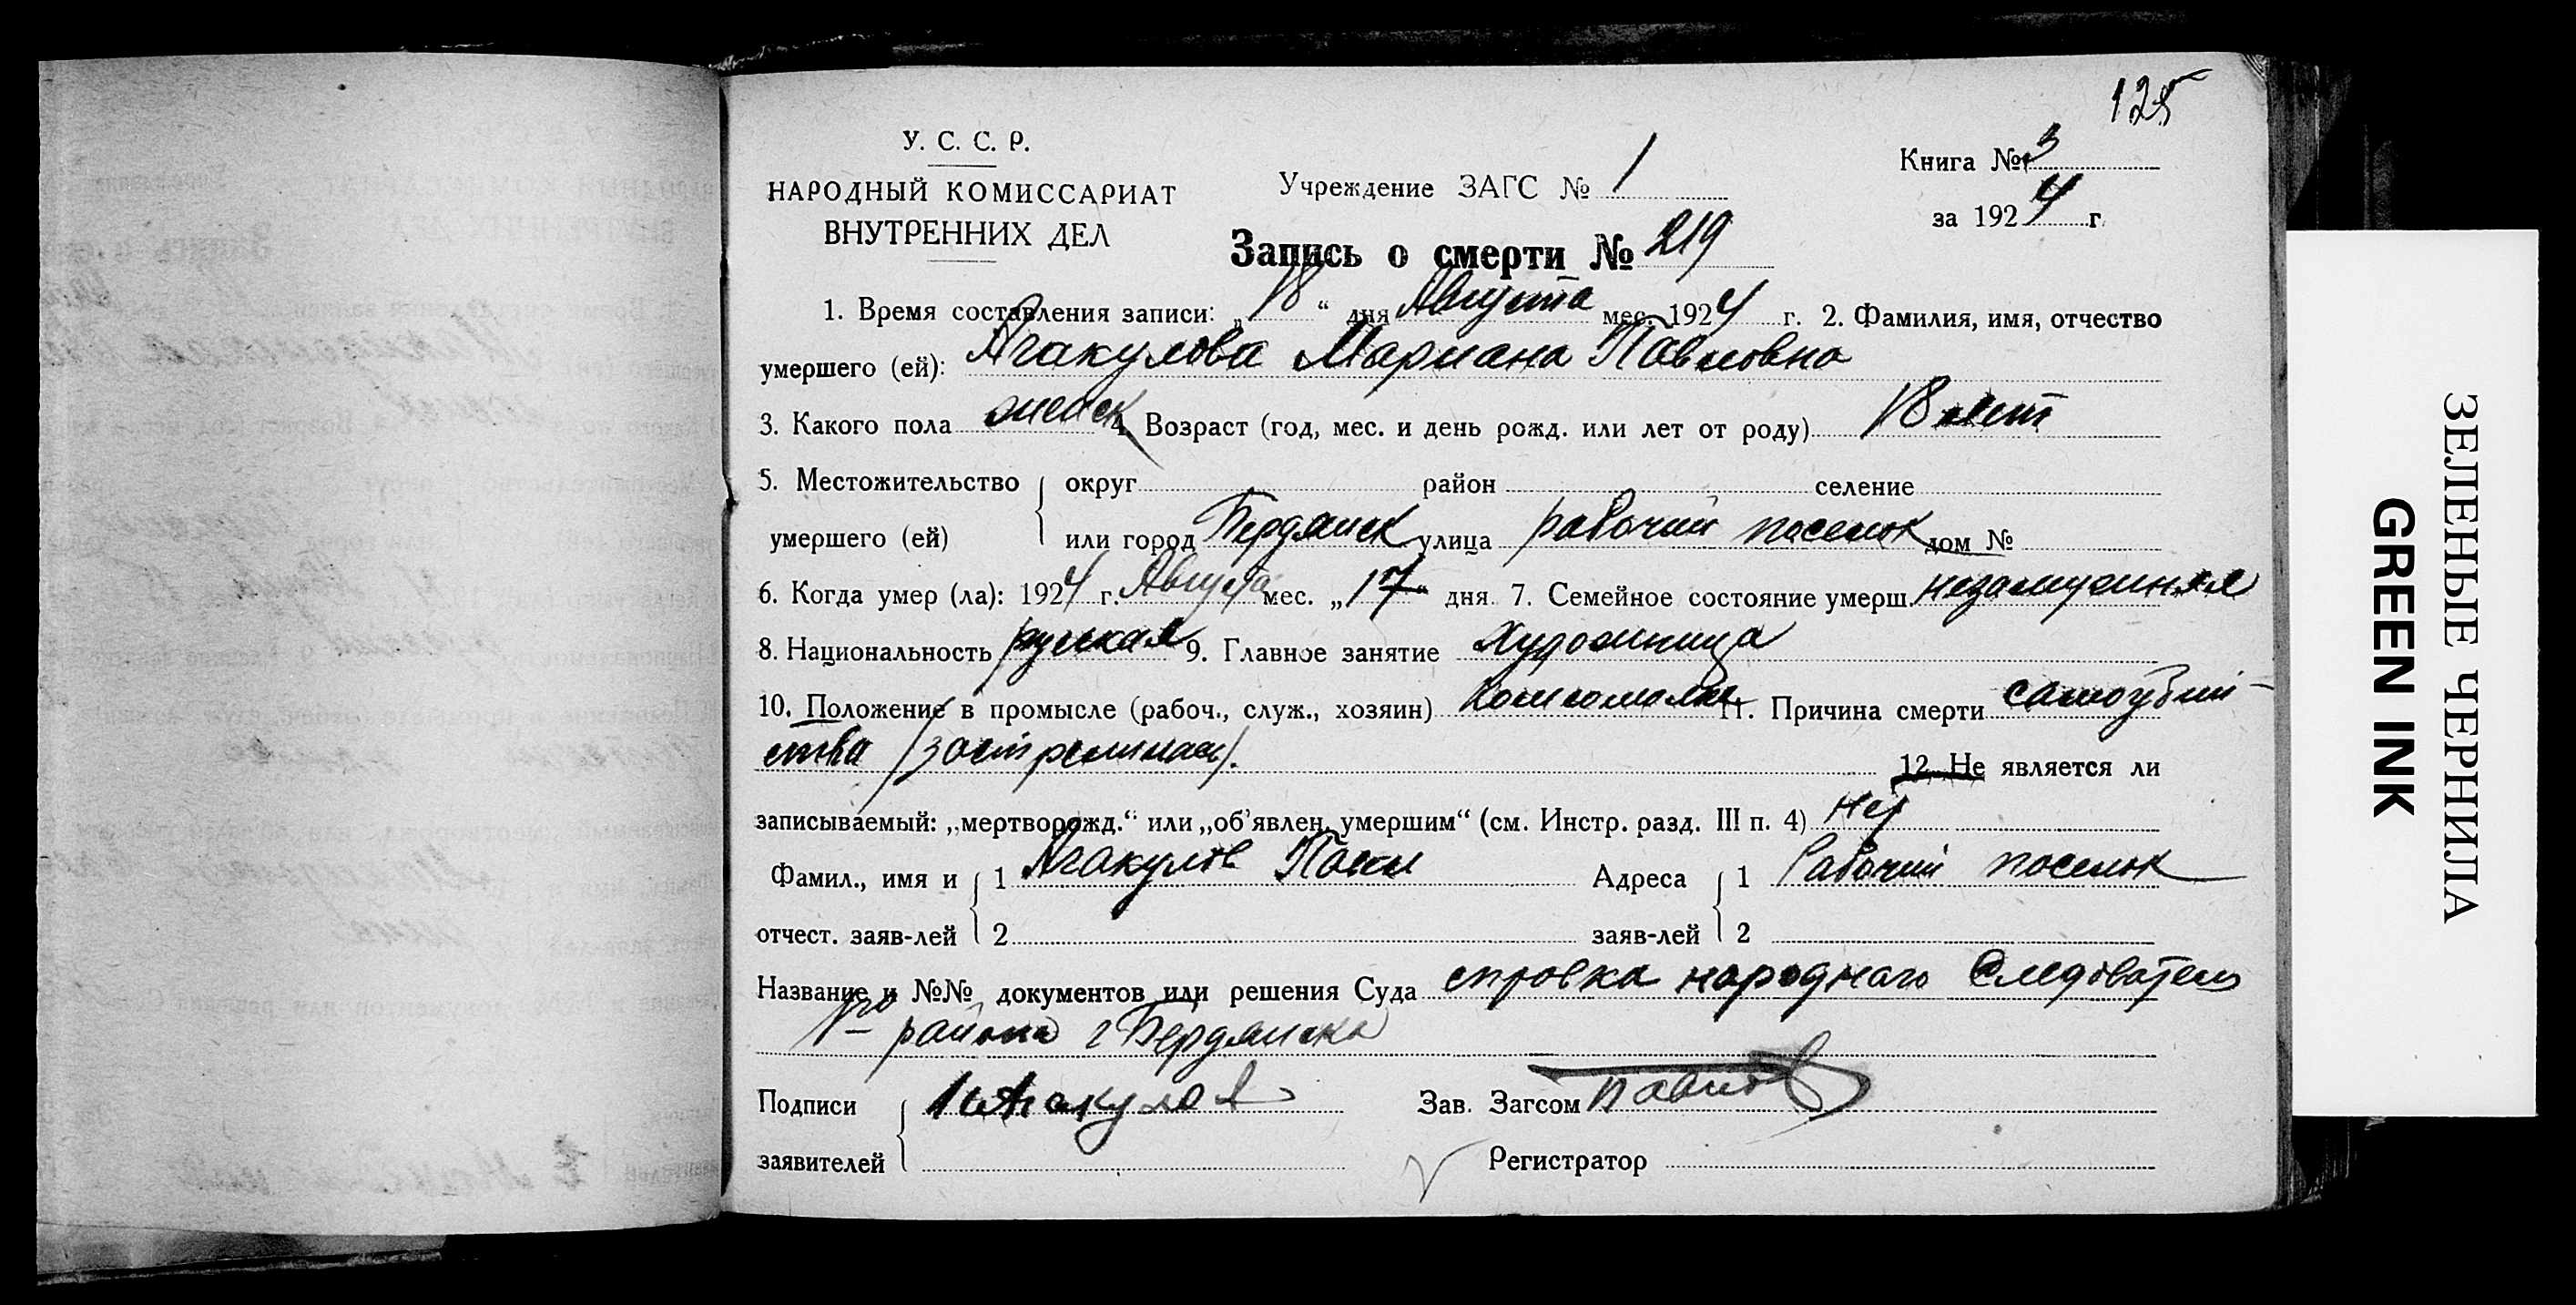 125
У. С. С. Р.
НАРОДНЫЙ КОМИССАРИАТ
ВНУТРЕННИХ ДЕЛ
Учреждение ЗАГС № 1
Книга № 3
за 1924 г.
Запись о смерти № 219
1. Время составления записи: „18“ дня Августа мес. 1924 г. 2. Фамилия, имя, отчество
умершего (ей): Агакулова Мариана Павловна
3. Какого пола женск 4. Возраст (год, мес. и день рожд. или лет от роду) 18 лет
5. Местожительство округ район селение
умершего (ей) или город Бердянск улица рабочий поселок дом №
6. Когда умер (ла): 1924 г. Августа мес. „17“ дня 7. Семейное состояние умерш. незамужняя
8. Национальность русская 9. Главное занятие Художница
10. Положение в промысле (рабоч., служ., хозяин) 11. Причина смерти самоубий-
ства /застрелилась/. 12. Не является ли
записываемый: „мертворожд.“ или „об’явлен. умершим“ (см. Инстр. разд. III п. 4) Нет
Фамил., имя и 1 Агакулов Адреса 1 Рабочий поселок
отчест. заяв-лей 2 заяв-лей 2
Название и №№ документов или решения Суда справка народного Следователя
1го района г Бердянска
Подписи Агакулов Зав. Загсом
заявителей Регистратор
ЗЕЛЕНЫЕ ЧЕРНИЛА
GREEN INK